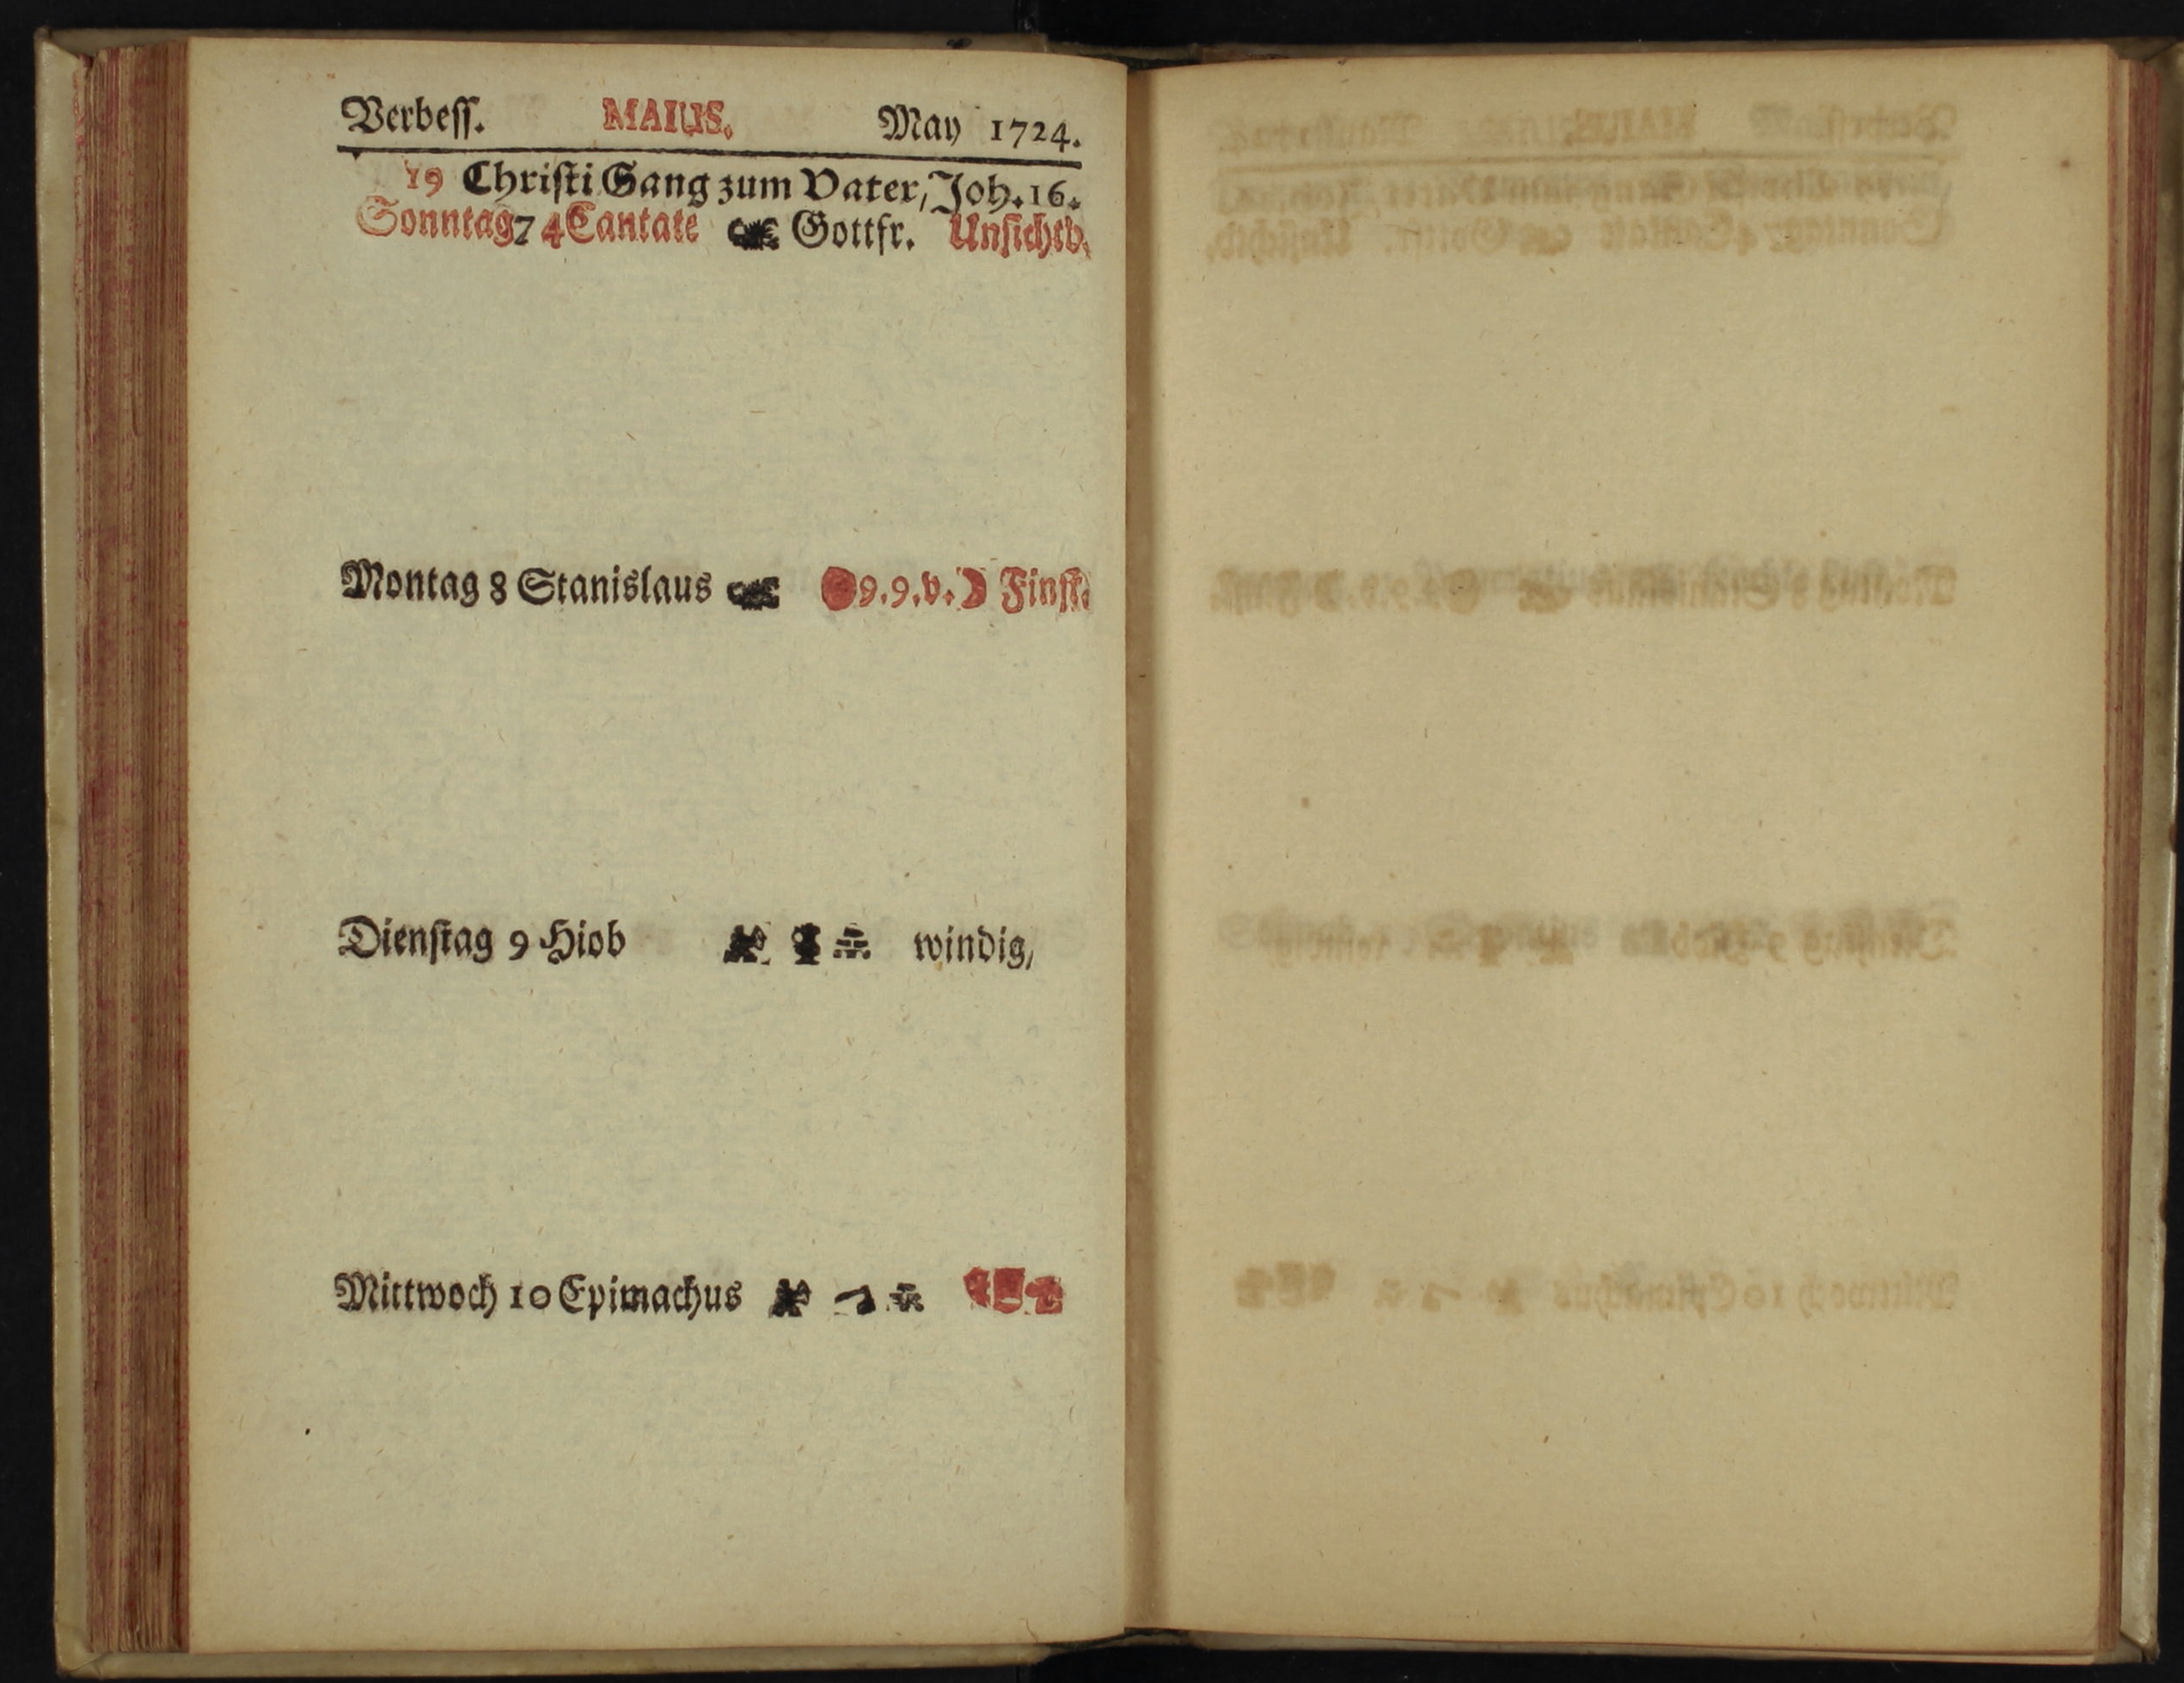 Verbeſſ. MAIUS. May 1724.
19 Chriſti Gang zum Vater, Joh. 16.
Sonntag 7 4 Cantate Gottfr. Unſichtb.
Montag 8 Stanislaus 9.9.v. ☽ Finſt.
Dienſtag 9 Hiob windig,
Mittwoch 10 Epimachus